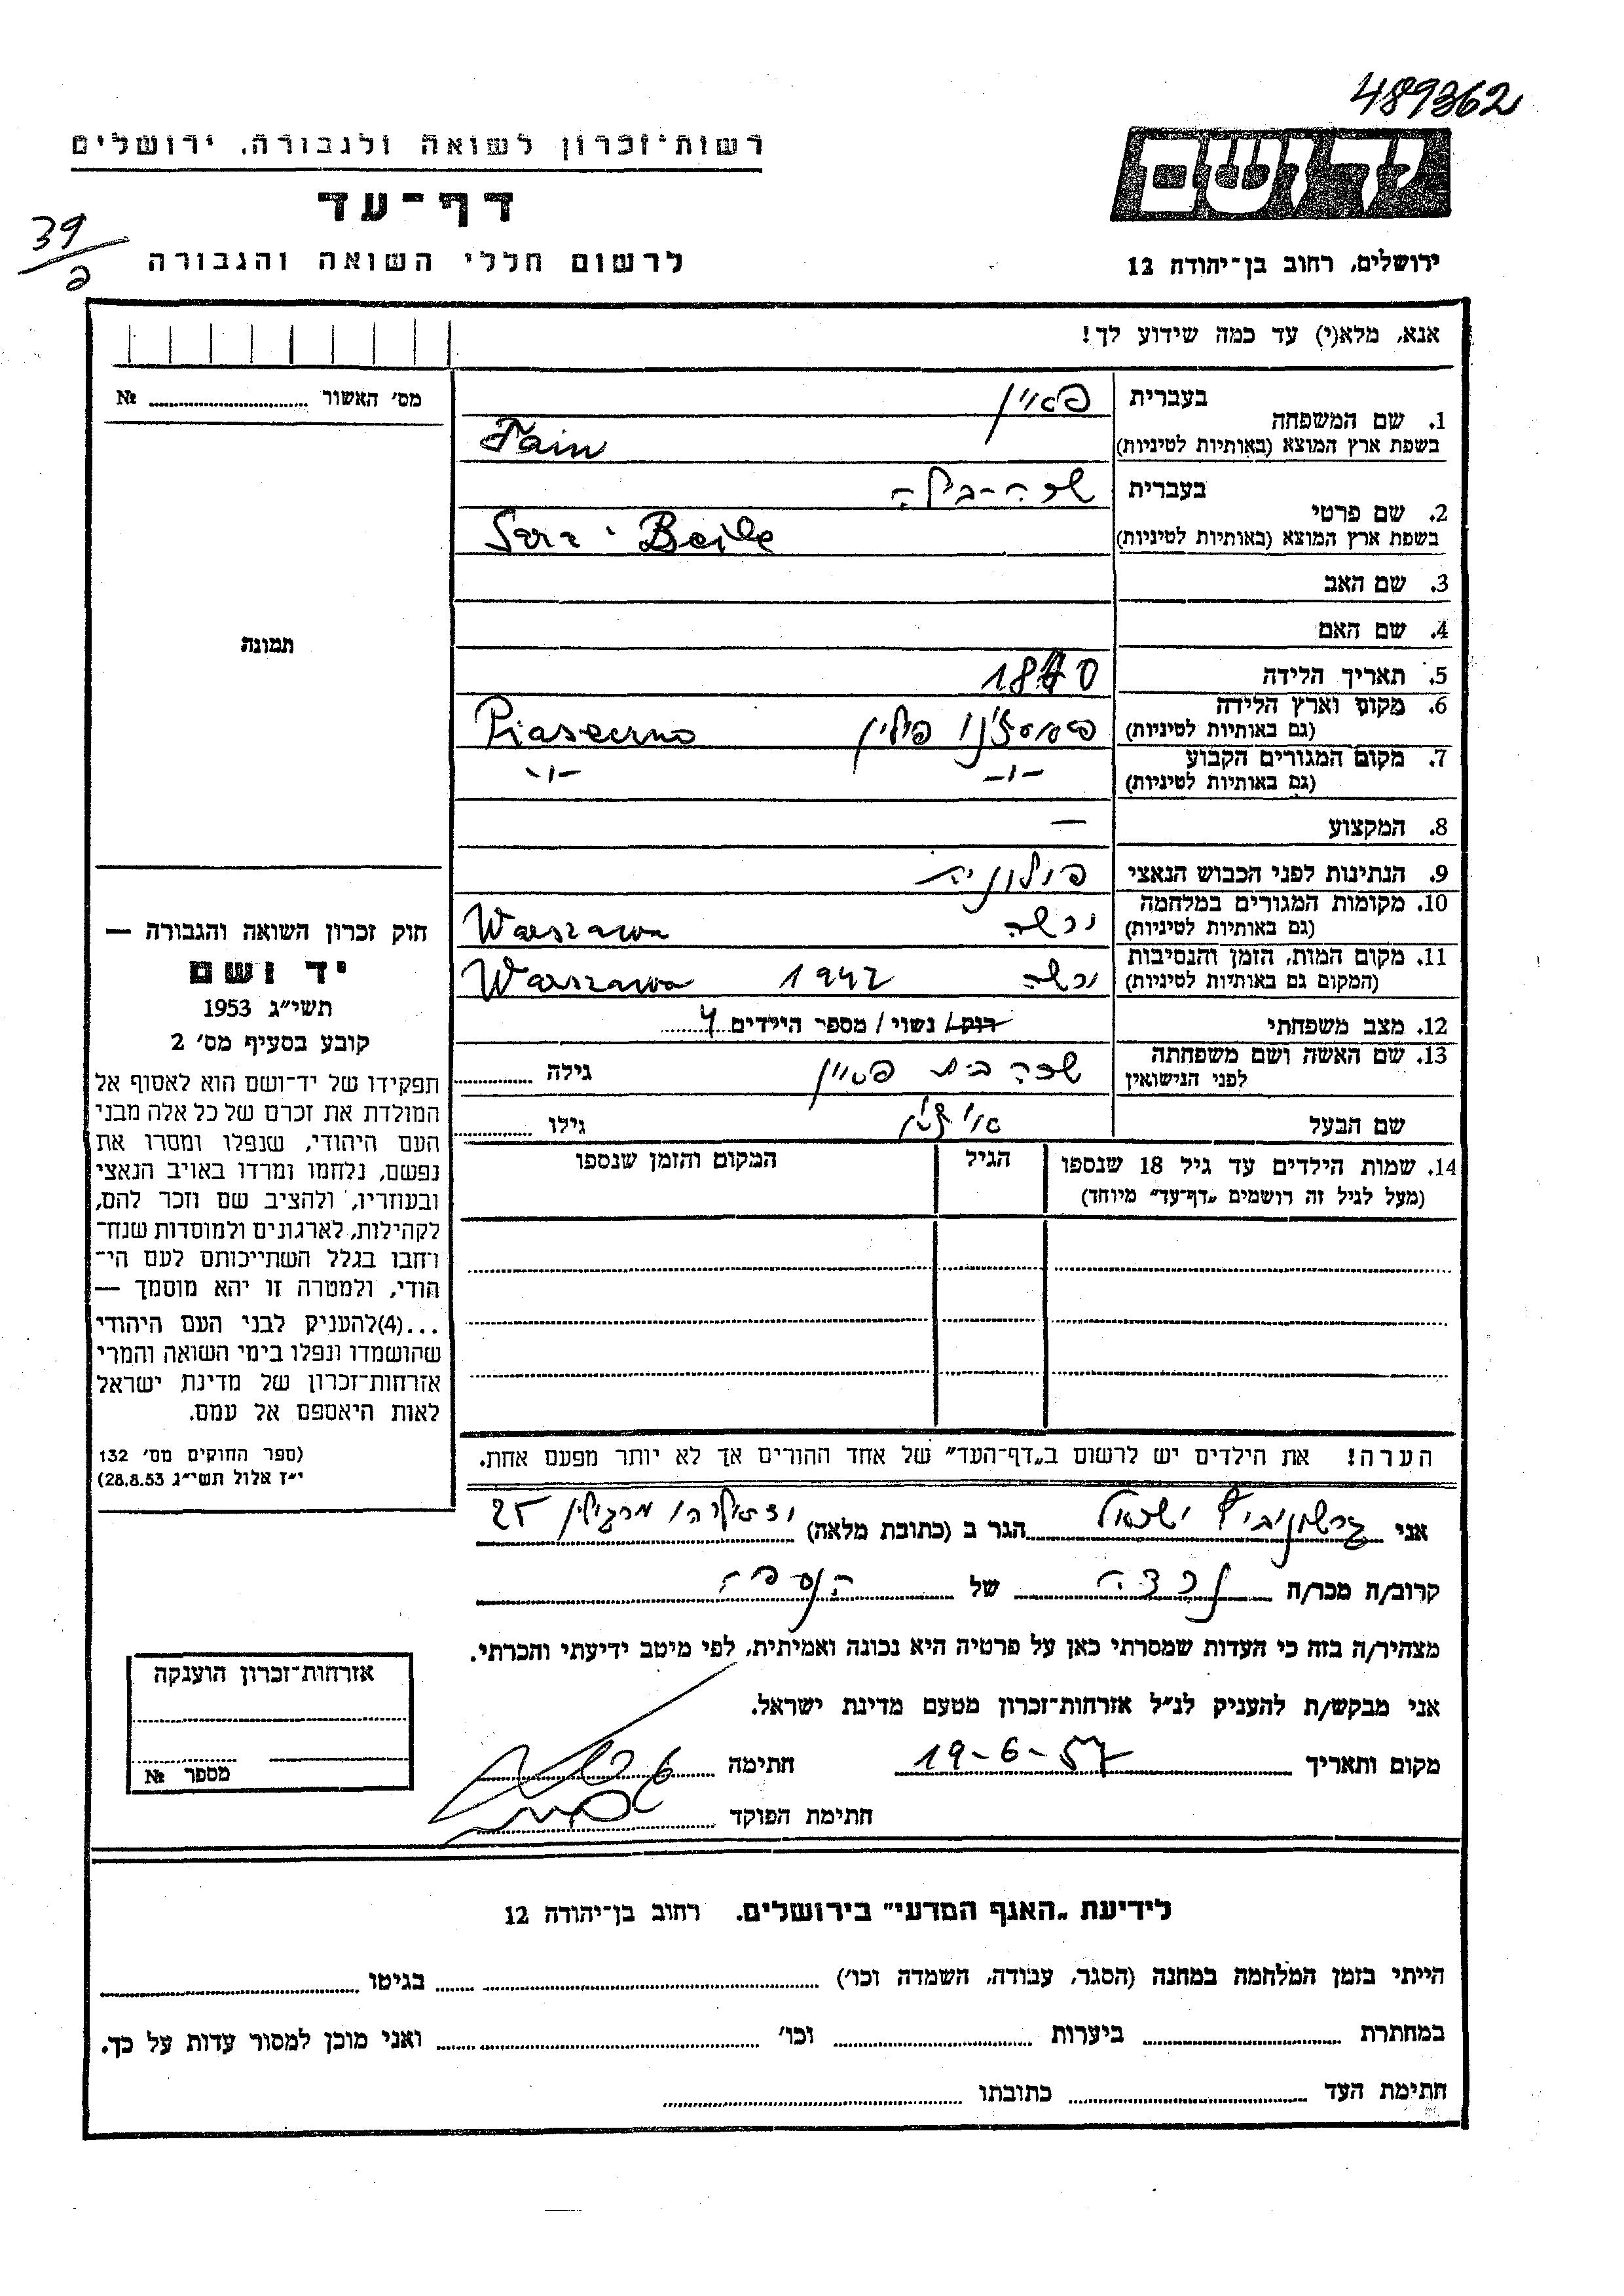 489362
רשות־זכרון לשואה ולגבורה, ירושלים
יד ושם
דף־עד
39/פ
לרשום חללי השואה והגבורה
ירושלים, רחוב בן־יהודה 12
אנא, מלא(י) עד כמה שידוע לך!
מס׳ האשור № 
1. שם המשפחה
בעברית פאיין
בשפת ארץ המוצא (באותיות לטיניות) Fain
2. שם פרטי
בעברית שרה-בילה
בשפת ארץ המוצא (באותיות לטיניות) Sara-Beile
3. שם האב
4. שם האם
5. תאריך הלידה 1870
6. מקום וארץ הלידה
(גם באותיות לטיניות) פולין Piaseczno
7. מקום המגורים הקבוע
(גם באותיות לטיניות) -"- -"-
8. המקצוע —
9. הנתינות לפני הכבוש הנאצי פולונית
10. מקומות המגורים במלחמה
(גם באותיות לטיניות) ורשה Warszawa
11. מקום המות, הזמן והנסיבות
(המקום גם באותיות לטיניות) ורשה 1942 Warszawa
12. מצב משפחתי רוק/ נשוי/ מספר הילדים 4
13. שם האשה ושם משפחתה
לפני הנישואין שרה בית פאיין גילה
שם הבעל גילו
14. שמות הילדים עד גיל 18 שנספו
(מעל לגיל זה רושמים „דף־עד״ מיוחד)
הגיל
המקום והזמן שנספו
הערה! את הילדים יש לרשום ב„דף־העד״ של אחד ההורים אך לא יותר מפעם אחת.
תמונה
חוק זכרון השואה והגבורה —
יד ושם
תשי״ג 1953
קובע בסעיף מס׳ 2
תפקידו של יד־ושם הוא לאסוף אל
המולדת את זכרם של כל אלה מבני
העם היהודי, שנפלו ומסרו את
נפשם, נלחמו ומרדו באויב הנאצי
ובעוזריו, ולהציב שם וזכר להם,
לקהילות, לארגונים ולמוסדות שנח־
רחבו בגלל השתייכותם לעם הי־
הודי, ולמטרה זו יהא מוסמך —
...(4)להעניק לבני העם היהודי
שהושמדו ונפלו בימי השואה והמרי
אזרחות־זכרון של מדינת ישראל
לאות היאספם אל עמם.
(ספר החוקים מס׳ 132
י״ז אלול תשי״ג 28.8.53)
אני גרשונוביץ ישראל הגר ב (כתובת מלאה) 25
קרוב/ה מכר/ה נכדה של הנספה
מצהיר/ה בזה כי העדות שמסרתי כאן על פרטיה היא נכונה ואמיתית, לפי מיטב ידיעתי והכרתי.
אני מבקש/ת להעניק לנ״ל אזרחות־זכרון מטעם מדינת ישראל.
מקום ותאריך 19-6-57 חתימה
חתימת הפוקד
אזרחות־זכרון הוענקה
מספר №
לידיעת „האגף המדעי״ בירושלים. רחוב בן־יהודה 12
הייתי בזמן המלחמה במחנה (הסגר, עבודה, השמדה וכו׳) בגיטו
במחתרת ביערות וכו׳ ואני מוכן למסור עדות על כך.
חתימת העד כתובתו